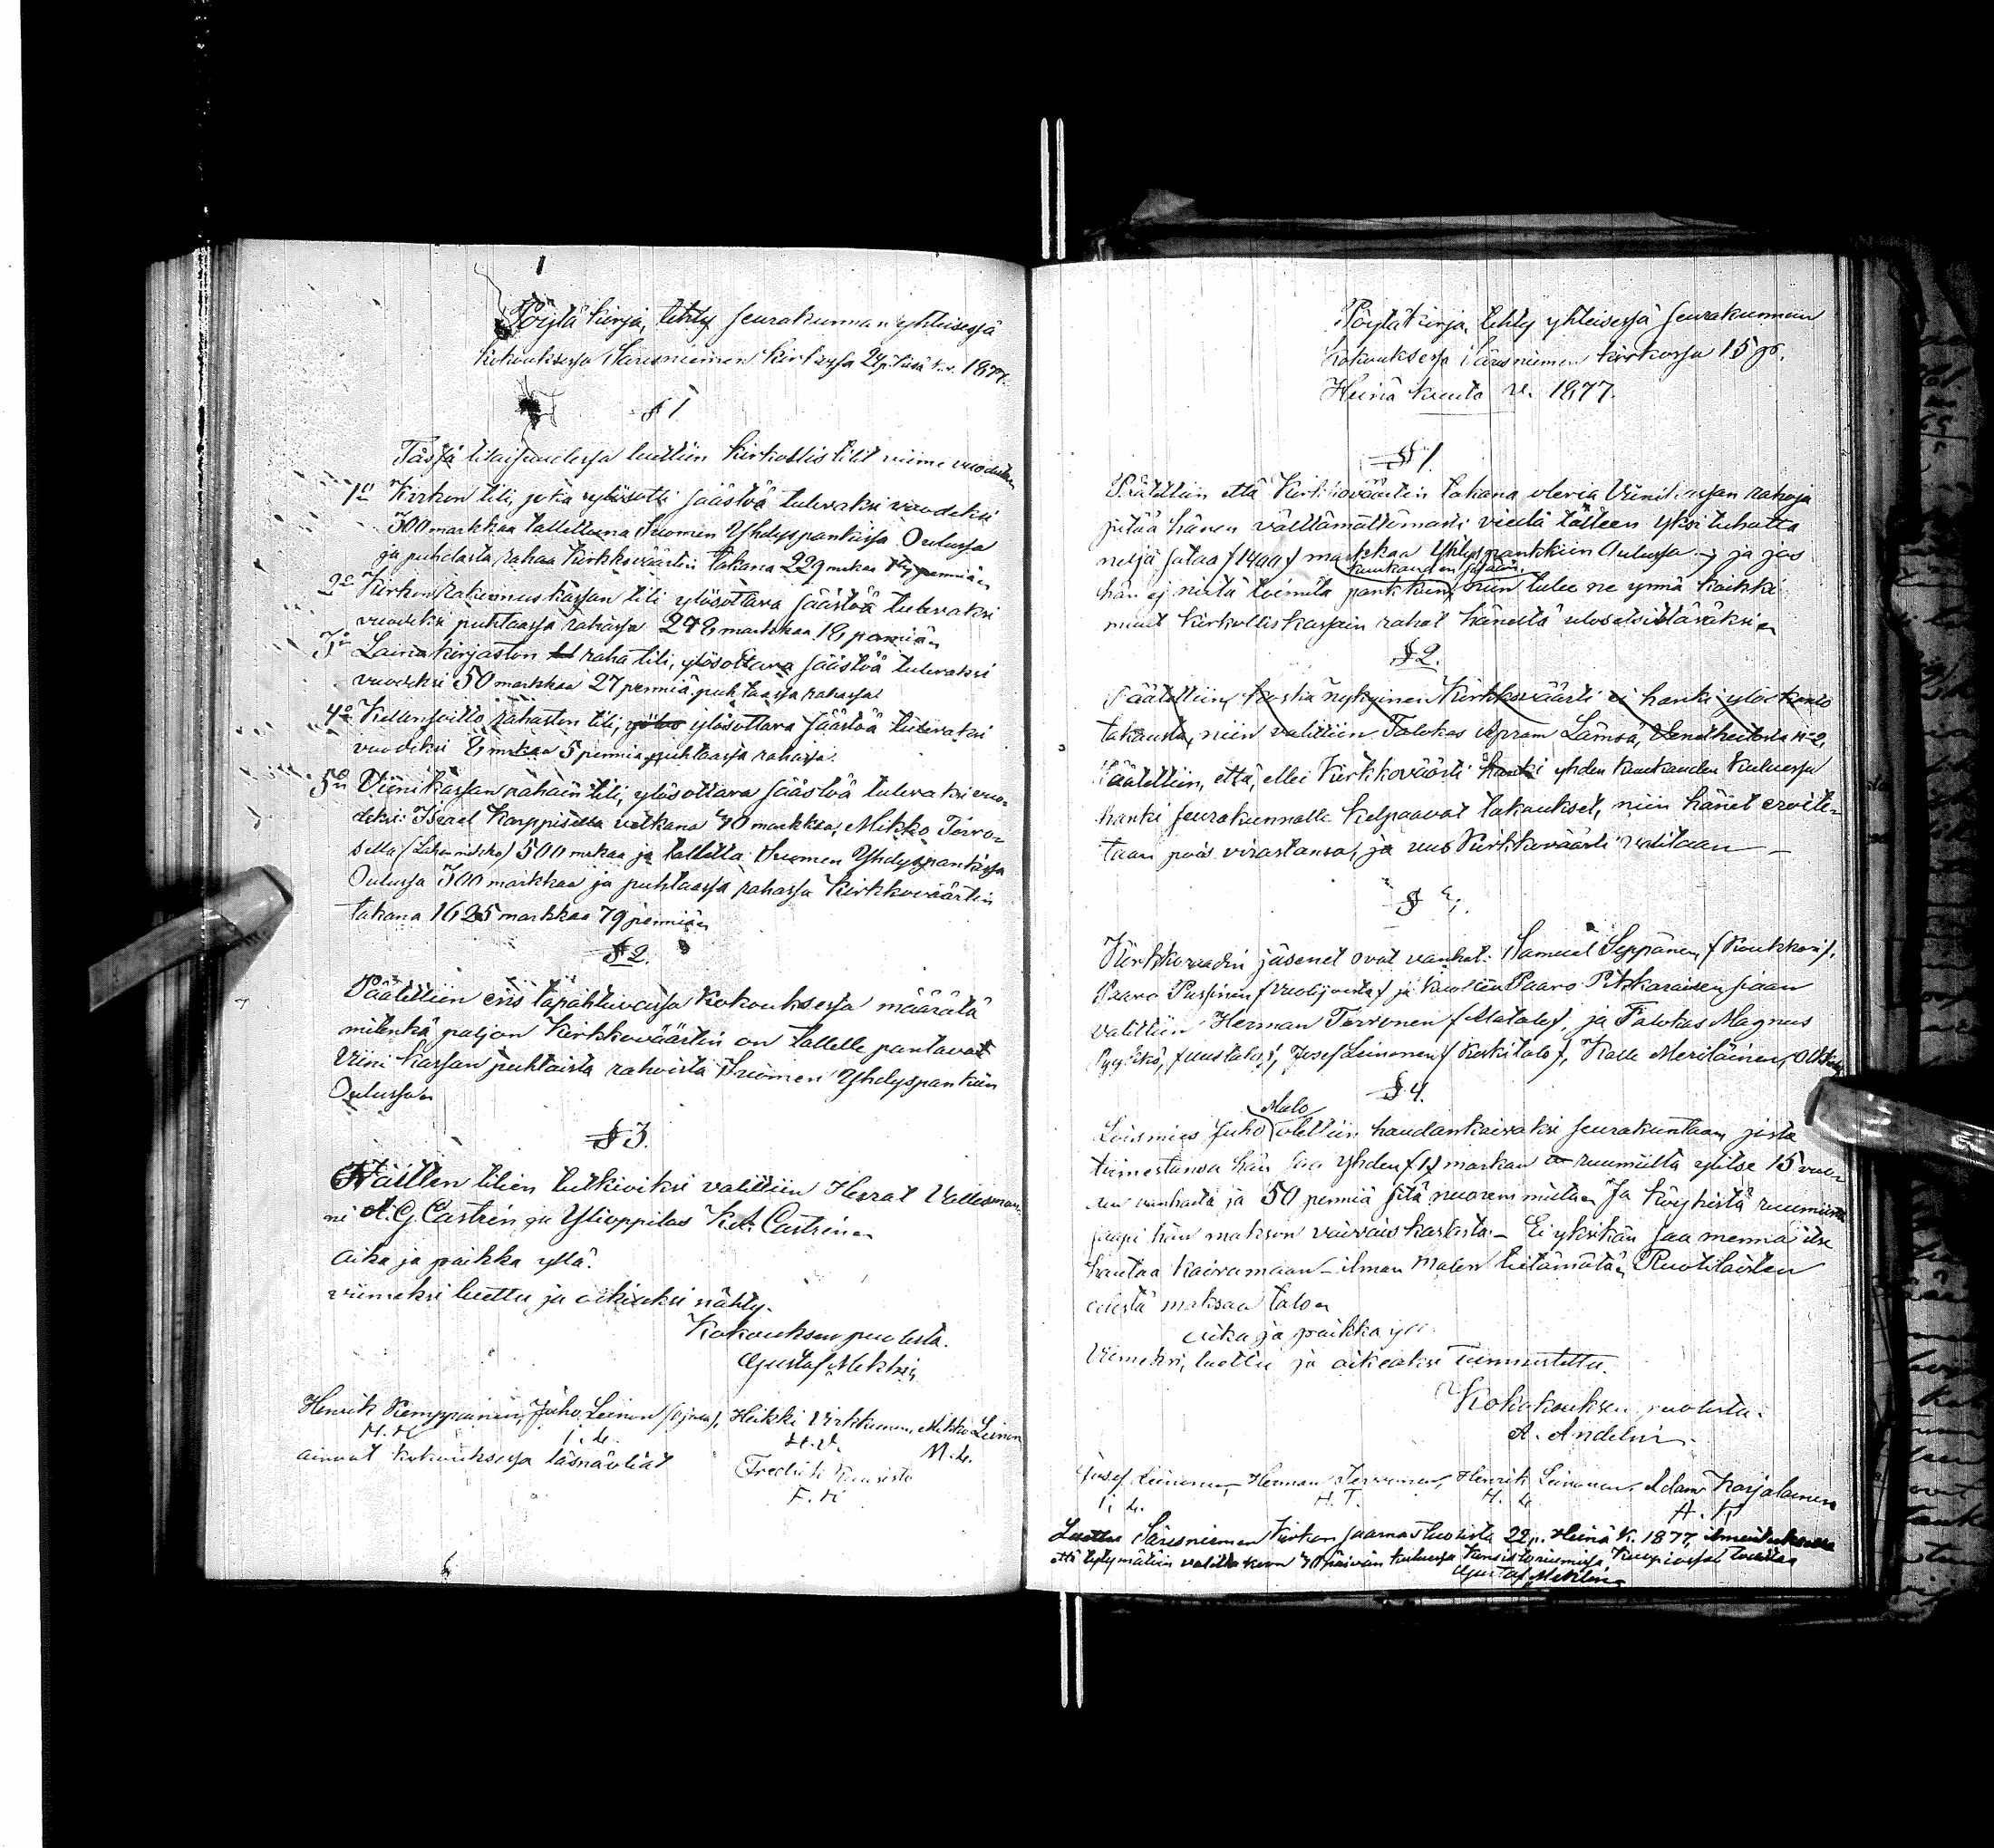 Pöytä kirja, tehty seurakunnan yhteisessä
kokouksessa Säresniemen kirkossa 24p. Kesä k. v. 1877.
§ 1
Tässä tilaisuudessa luettiin Kirkollis tilit viime vuodelta
1o Kirkon tili, joka ylösotti säästöä tulevaksi vuodeksi
300 markkaa talletettuna Suomen Yhdyspankissa Oulussa
ja puhdasta rahaa Kirkkoväärtin takana 229 mrkaa penniä
2o Kirkon Rakennus kassan tili ylösottava säästöä tulevaksi
vuodeksi puhtaassa rahassa 248 markkaa 18 penniä
3o Laina kirjaston raha tili, ylösottava säästöä tulevaksi
vuodeksi 50 markkaa 27 penniä puhtaassa rahassa
4o Kellonsoitto rahaston tili, ylösottava säästöä tulevaksi
vuodeksi 8 mrkaa 5 penniä puhtaassa rahassa.
5o Viinikassan rahain tili, ylösottava säästöä tulevaksi vuo-
deksi: Israel Karppisella velkana 40 markkaa, Mikko Tervo-
sella 500 mrkaa ja talletettu Suomen Yhdyspankissa
Oulussa 300 markkaa ja puhtaassa rahassa Kirkkoväärtin
takana 1625 markkaa 79 penniä
§ 2.
Päätettiin ens tapahtuvassa Kokouksessa määrätä
mitenkä paljon Kirkkoväärtin on tallelle pantavat
Viini kassan puhtaista rahoista Suomen Yhdyspankiin
Oulussa
§ 3.
Näitten tilien tutkiviksi valittiin Herrat Vallesman-
ni A. G. Castrén ja Ylioppilas K. A. Castrén
Aika ja paikka yllä.
viimeksi luettu ja oikiaksi nähty.
Kokouksen puolesta.
Gustaf Meklin
Henrik Kemppainen, Juho Leinon, Heikki Virkkunen, Mikko Leinon
H. K. J. L. H. V. M. L.
ainoat kokouksessa läsnäoliat Fredrik Kuusisto
F. K
Pöytäkirja, tehty yhteisessä seurakunnan
kokouksessa Säresniemen kirkossa 15 p.
Heinä kuuta v. 1877.
§ 1.
Päätettiin että Kirkkoväärtin takana olevia Viinikassan rahoja
pitää hänen välttämättömästi viedä talteen yksi tuhatta
neljä sataa (1400) markkaa Yhdyspankkiin Oulussa ja jos
kuukauden sisään
hän ej niitä toimita pankkiin, niin tulee ne ynnä kaikki
muut Kirkolliskassain rahat häneltä ulosetsittäväksi
§ 2.
Päätettiin, koska nykyinen Kirkkoväärti ei hanki
takausta, niin valittiin Talokas Apram Lämsä, No 2,
Päätettiin, että, ellei Kirkkoväärti yhden kuukauden kuluessa
hanki seurakunnalle kelpaavat takaukset, niin hänet eroite-
taan pois virastansa, ja uus Kirkkoväärti valitaan
§ 3.
Kirkkoraadin jäsenet ovat vanhat: Samuel Seppänen,
Paavo Pussinen ja kuolleen Paavo Pitkäraisen siaan
valittiin Herman Tervonen, ja Talokas Magnus
Josef Leinonen (Keskitalo), Kalle Meriläinen
§ 4.
Malo
Loismies Juho otettiin haudankaivaksi seurakuntaan, josta
toimestansa hän saa yhden (1) markan ruumiilta ylitse 15 vuo-
den vanhasta ja 50 penniä sitä nuoremmilta Ja köyhistä ruumiista
saapi hän makson vaivais kassasta. Ei yksikän saa mennä itse
hautaa kaivamaan ilman Malon tietämätä Ruotilaisten
edestä maksaa talo
Aika ja paikka
Viimeksi, luettu ja oikeaksi tunnustettu.
Kokouksen puolesta.
A. Andelin.
Josef Leinonen, Herman Tervonen, Henrik Leinonen, Adam Karjalainen
J. L. H. T. H. L. A. K
Luettu Säresniemen Kirkon saarnastuolista 22 p. Heinä K. 1877,
että tytymätöin valittakoon 30 päivän kuluessa Konsistoriumissa Kuopiossa,
Gustaf Meklin